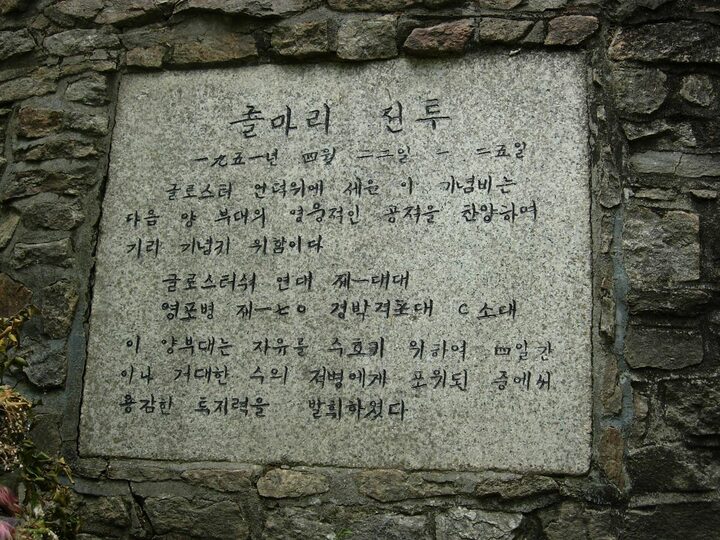 졸마리 전투
一九五一년 四월 二二일 - 二五일
글로스터 언덕위에 세운 이 기념비는
다음 양 부대의 영웅적인 공적을 찬양하여
기리 기념키 위함이다
글로스터쉬 연대 제一대대
영포병 제一七0 경박격포대 C 소대
이 양부대는 자유를 수호키 위하여 四일간
이나 거대한 수의 적병에게 포위된 중에서
용감한 투지력을 발휘하였다